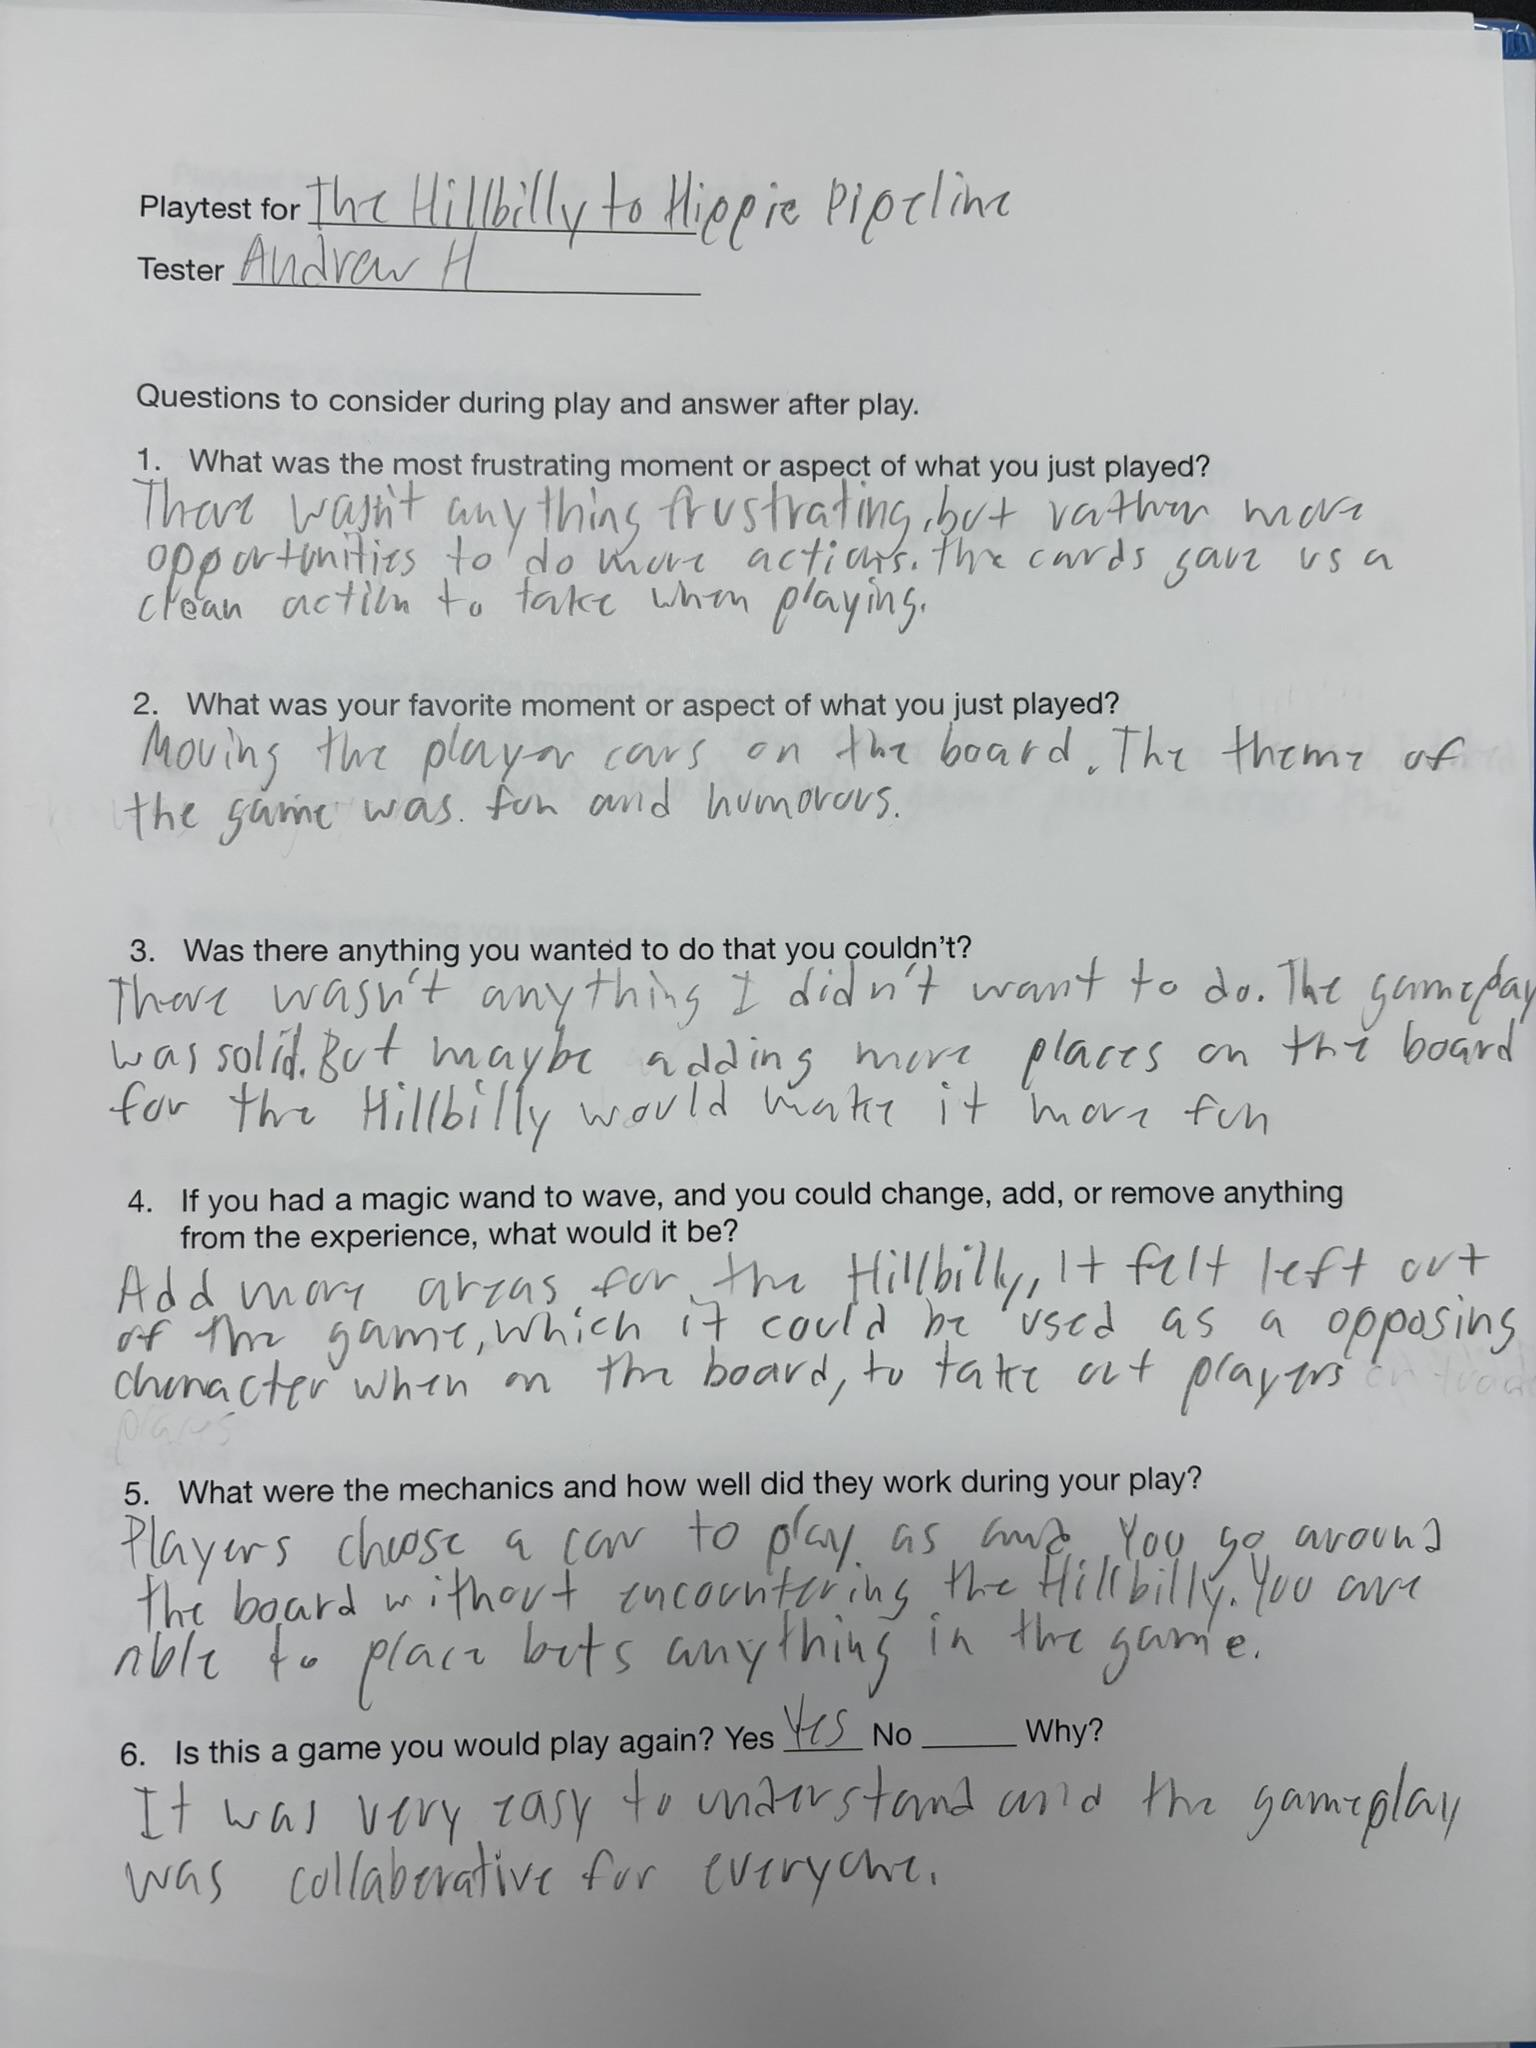 Playtest for The Hillbilly to Hippie Pipeline
Tester Andrew H
Questions to consider during play and answer after play.
1. What was the most frustrating moment or aspect of what you just played?
There wasn't anything frustrating, but rather more
opportunities to do more actions. The cards gave us a
clean action to take when playing.
2. What was your favorite moment or aspect of what you just played?
Moving the player cars on the board. The theme of
the game was fun and humorous.
3. Was there anything you wanted to do that you couldn't?
There wasn't anything I didn't want to do. The gameplay
was solid. But maybe adding more places on the board
for the Hillbilly would make it more fun
4. If you had a magic wand to wave, and you could change, add, or remove anything
from the experience, what would it be?
Add more areas for the Hillbilly, It felt left out
of the game, which it could be used as a opposing
character when on the board, to take out players
places
5. What were the mechanics and how well did they work during your play?
Players choose a car to play as and You go around
the board without encountering the Hillbilly. You are
able to place bets anything in the game.
6. Is this a game you would play again? Yes Yes No _____ Why?
It was very easy to understand and the gameplay
was collaberative for everyone.